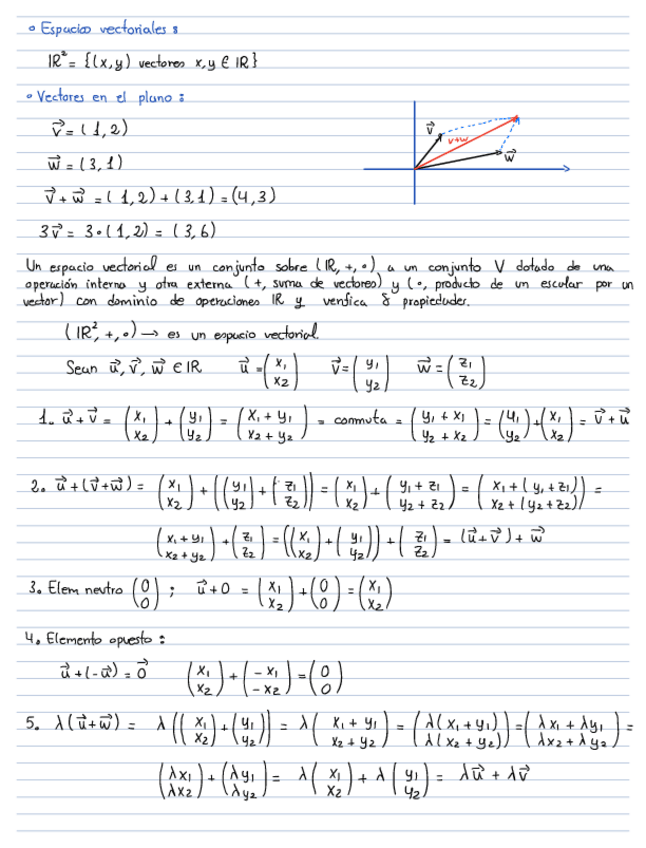 ° Espacios vectoriales :
IR² = {(x,y) vectores x,y ∈ IR}
° Vectores en el plano :
v⃗ = (1,2)
w⃗ = (3,1)
v⃗ + w⃗ = (1,2) + (3,1) = (4,3)
3v⃗ = 3·(1,2) = (3,6)
v⃗
v+w
w⃗
Un espacio vectorial es un conjunto sobre (IR, +, ∘) a un conjunto V dotado de una
operación interna y otra externa (+, suma de vectores) y (∘, producto de un escalar por un
vector) con dominio de operaciones IR y verifica 8 propiedades.
(IR², +, ∘) → es un espacio vectorial
Sean u⃗, v⃗, w⃗ ∈ IR u⃗ = (x₁ x₂) v⃗ = (y₁ y₂) w⃗ = (z₁ z₂)
1.. u⃗ + v⃗ = (x₁ x₂) + (y₁ y₂) = (x₁ + y₁ x₂ + y₂) = conmuta = (y₁ + x₁ y₂ + x₂) = (y₁ y₂) + (x₁ x₂) = v⃗ + u⃗
2. u⃗ + (v⃗ + w⃗) = (x₁ x₂) + ((y₁ y₂) + (z₁ z₂)) = (x₁ x₂) + (y₁ + z₁ y₂ + z₂) = (x₁ + (y₁ + z₁) x₂ + (y₂ + z₂)) =
(x₁ + y₁ x₂ + y₂) + (z₁ z₂) = ((x₁ x₂) + (y₁ y₂)) + (z₁ z₂) = (u⃗ + v⃗) + w⃗
3. Elem neutro (0 0) ; u⃗ + 0 = (x₁ x₂) + (0 0) = (x₁ x₂)
4. Elemento opuesto :
u⃗ + (-u⃗) = 0⃗ (x₁ x₂) + (-x₁ -x₂) = (0 0)
5. λ(u⃗ + w⃗) = λ((x₁ x₂) + (y₁ y₂)) = λ(x₁ + y₁ x₂ + y₂) = (λ(x₁ + y₁) λ(x₂ + y₂)) = (λx₁ + λy₁ λx₂ + λy₂) =
(λx₁ λx₂) + (λy₁ λy₂) = λ(x₁ x₂) + λ(y₁ y₂) = λu⃗ + λv⃗